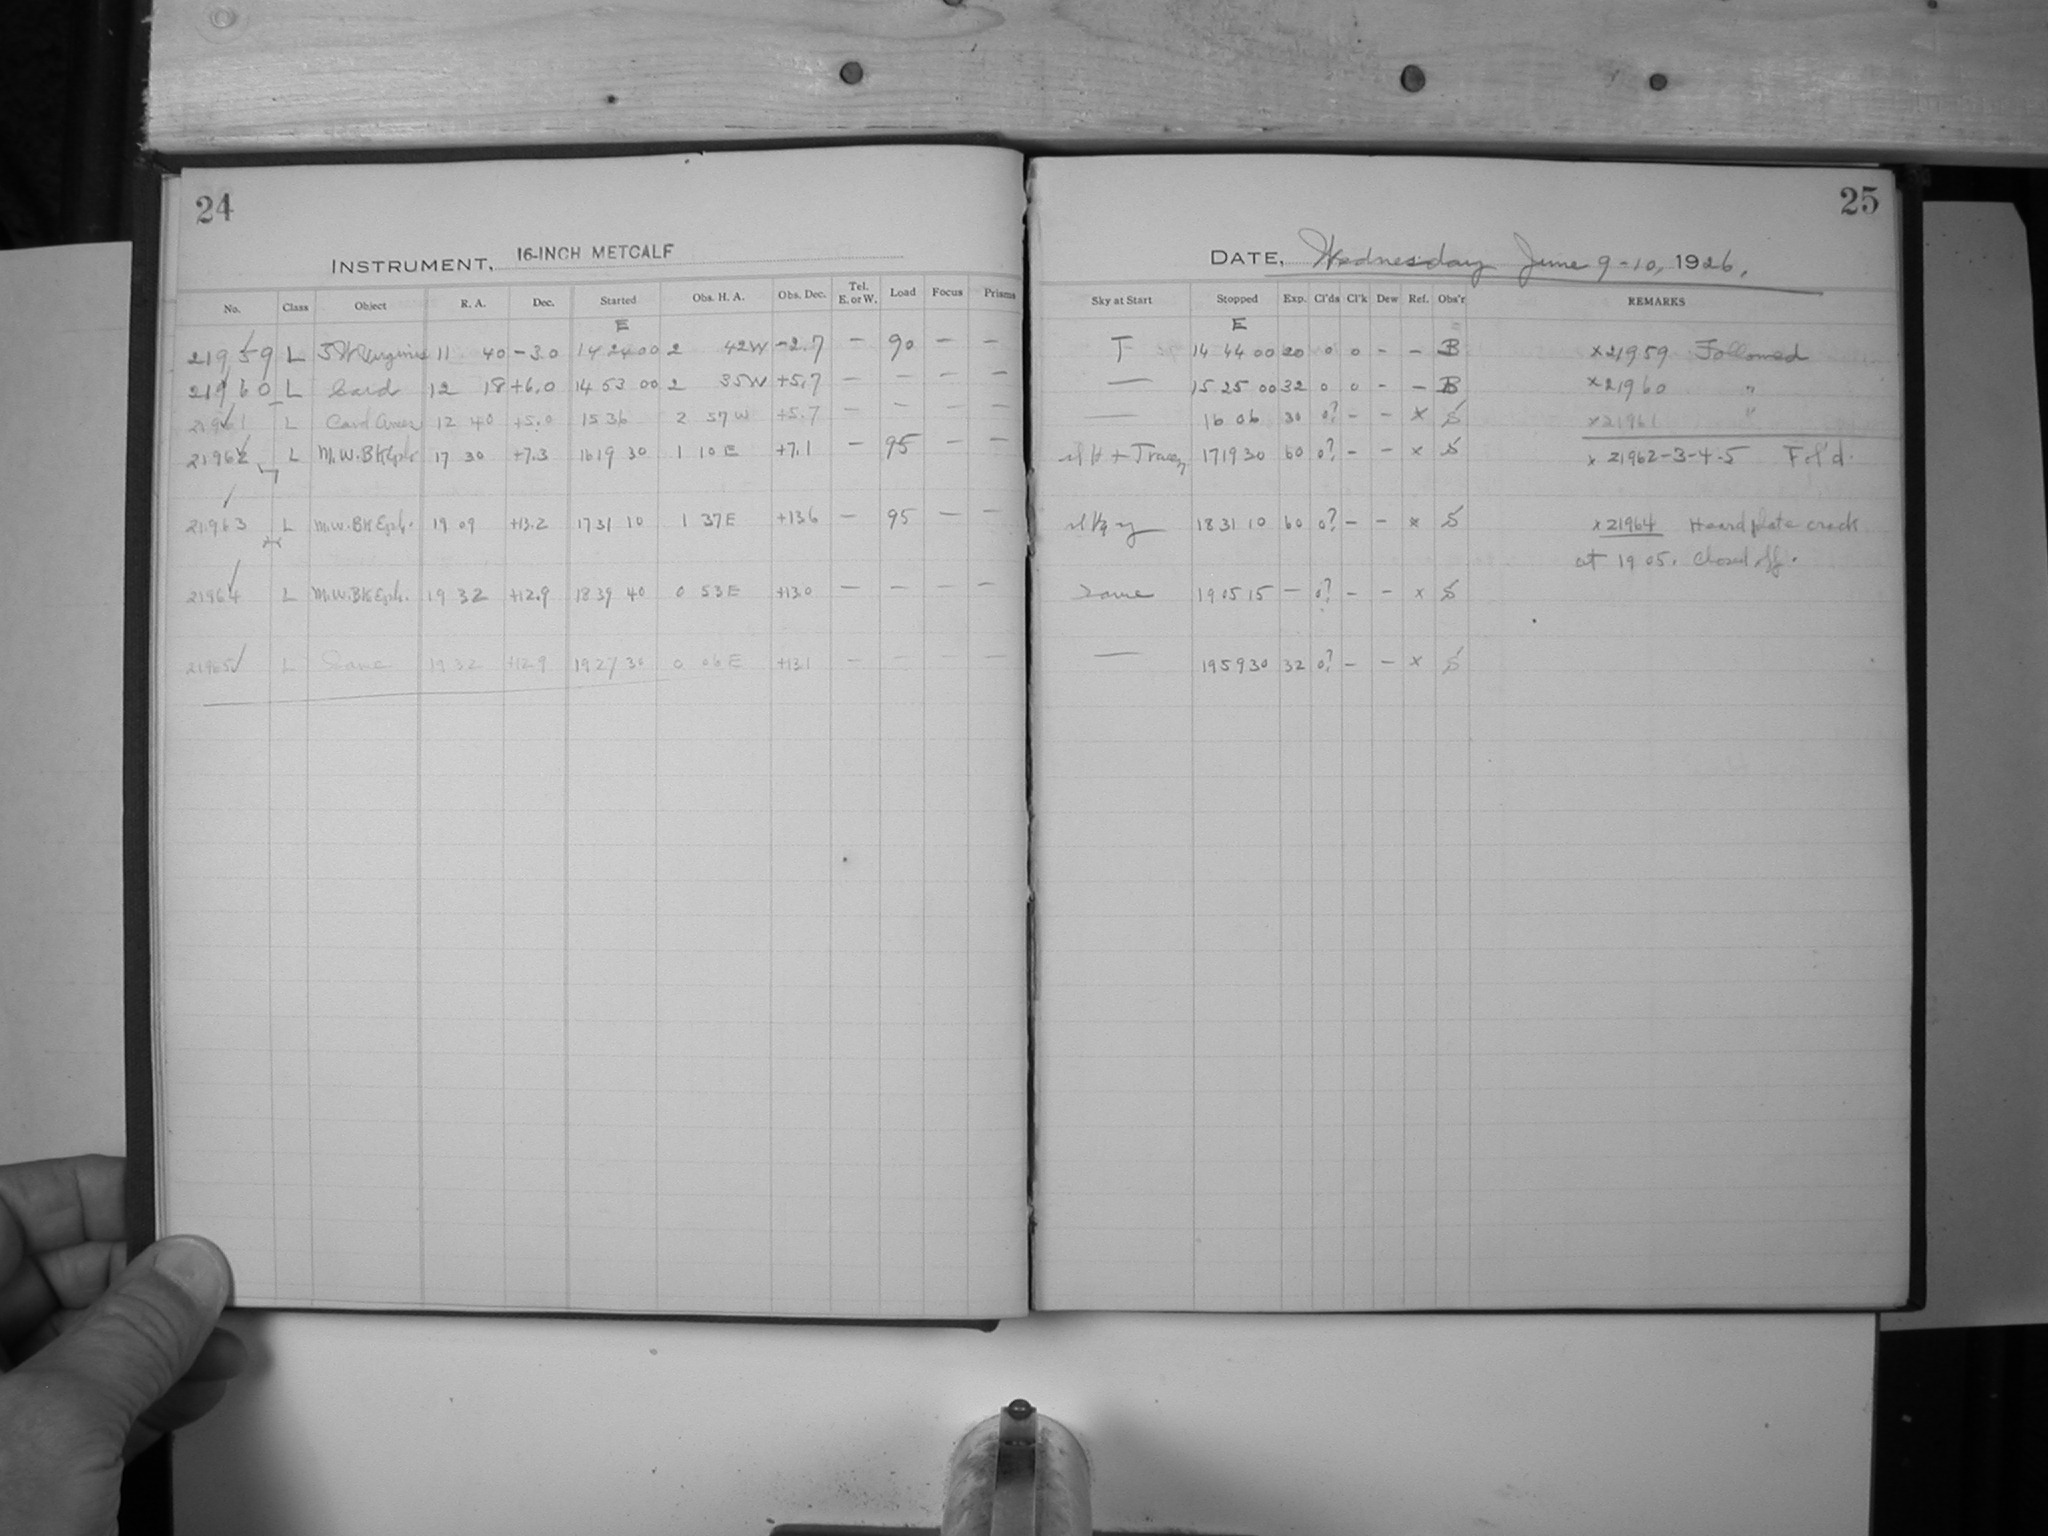 24
INSTRUMENT, 16-INCH METCALF
No. Class Object R. A. Dec. Started Obs. H. A. Obs. Dec. Tel. E. or W. Load Focus Prisms
E
21959 L Virginis 11 40 -3.0 14 24 00 2 42W -2.7 — 90 — —
21960 L Card 12 18 +6.0 14 53 00 2 35W +5.7 — — — —
21961 L Card 12 40 +5.0 15 36 2 57 W +5.7 — — — —
21962 L M.W.BK 17 30 +7.3 16 19 30 1 10 E +7.1 — 95 — —
21963 L M.W.BK Eph. 19 09 +13.2 17 31 10 1 37 E +13.6 — 95 — —
21964 L M.W.BK Eph. 19 32 +12.9 18 39 40 0 53 E +13.0 — — — —
21965 L Same 19 32 +12.9 19 27 30 0 06 E +13.1 — — — —
25
DATE, Wednesday June 9-10, 1926.
Sky at Start Stopped Exp. Cl'ds Cl'k Dew Ref. Obs'r REMARKS
E
T 14 44 00 20 0 0 - - B ×21959 Followed
— 15 25 00 32 0 0 - - B ×21960 "
— 16 06 30 0? - - × S ×21961 "
17 19 30 60 0? - - × S × 21962-3-4-5 F'l'd.
18 31 10 60 0? - - × S ×21964 Heard plate crack
at 19 05. Closed off.
Same 19 05 15 — 0? - - × S
— 19 59 30 32 0? - - × S